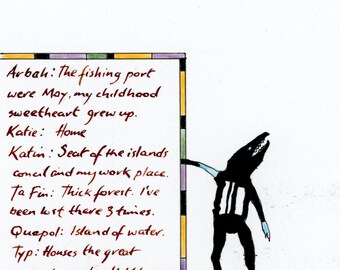 Arbah: The fishing port
were May, my childhood
sweetheart grew up.
Katie: Home
Katin: Seat of the islands
concil and my work place.
Ta Fin: Thick forest. I've
been lost there 3 times.
Quapol: Island of water.
Typ: Houses the great